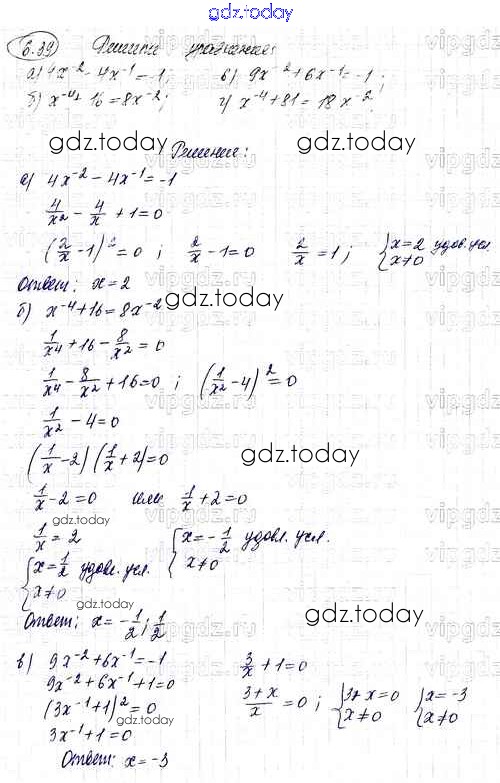 gdz.today
6.39 Решить уравнение:
а) 4x⁻² - 4x⁻¹ = -1; в) 9x⁻² + 6x⁻¹ = -1;
б) x⁻⁴ + 16 = 8x⁻²; г) x⁻⁴ + 81 = 18x⁻²
gdz.today gdz.today
Решение:
а) 4x⁻² - 4x⁻¹ = -1
4/x² - 4/x + 1 = 0
(2/x - 1)² = 0 ; 2/x - 1 = 0 2/x = 1 ; { x = 2 удов. усл. x ≠ 0
Ответ: x = 2
gdz.today
б) x⁻⁴ + 16 = 8x⁻²
1/x⁴ + 16 - 8/x² = 0
1/x⁴ - 8/x² + 16 = 0 ; (1/x² - 4)² = 0
1/x² - 4 = 0
(1/x - 2)(1/x + 2) = 0
gdz.today
1/x - 2 = 0 или 1/x + 2 = 0
gdz.today
1/x = 2 { x = -1/2 удовл. усл. x ≠ 0
{ x = 1/2 удовл. усл. x ≠ 0
gdz.today
Ответ: x = -1/2 ; 1/2
в) 9x⁻² + 6x⁻¹ = -1 3/x + 1 = 0
9x⁻² + 6x⁻¹ + 1 = 0 (3 + x)/x = 0 ; { 3 + x = 0 x ≠ 0 { x = -3 x ≠ 0
(3x⁻¹ + 1)² = 0
gdz.today
3x⁻¹ + 1 = 0
gdz.today
Ответ: x = -3